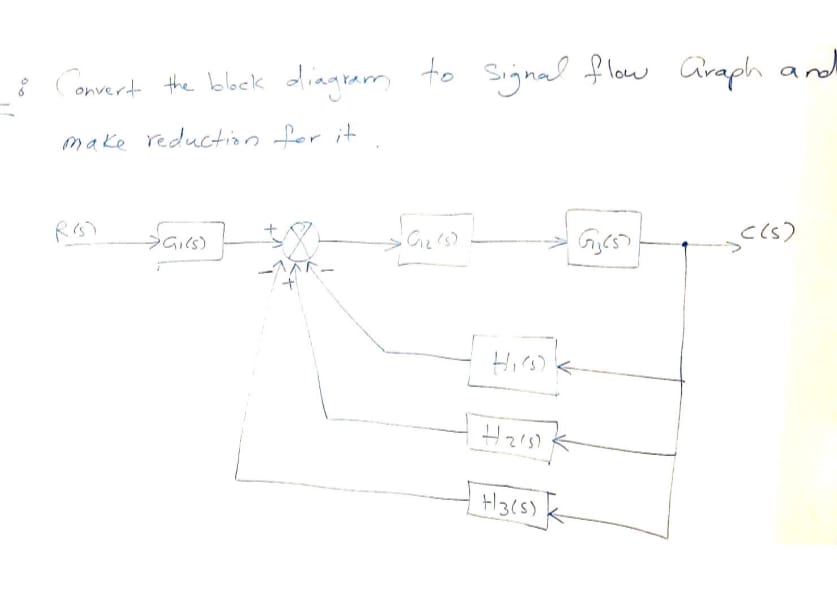 : Convert the block diagram to Signal flow Graph and
make reduction for it.
R(s)
G1(s)
+
G2(s)
G3(s)
C(s)
- + -
H1(s)
H2(s)
H3(s)